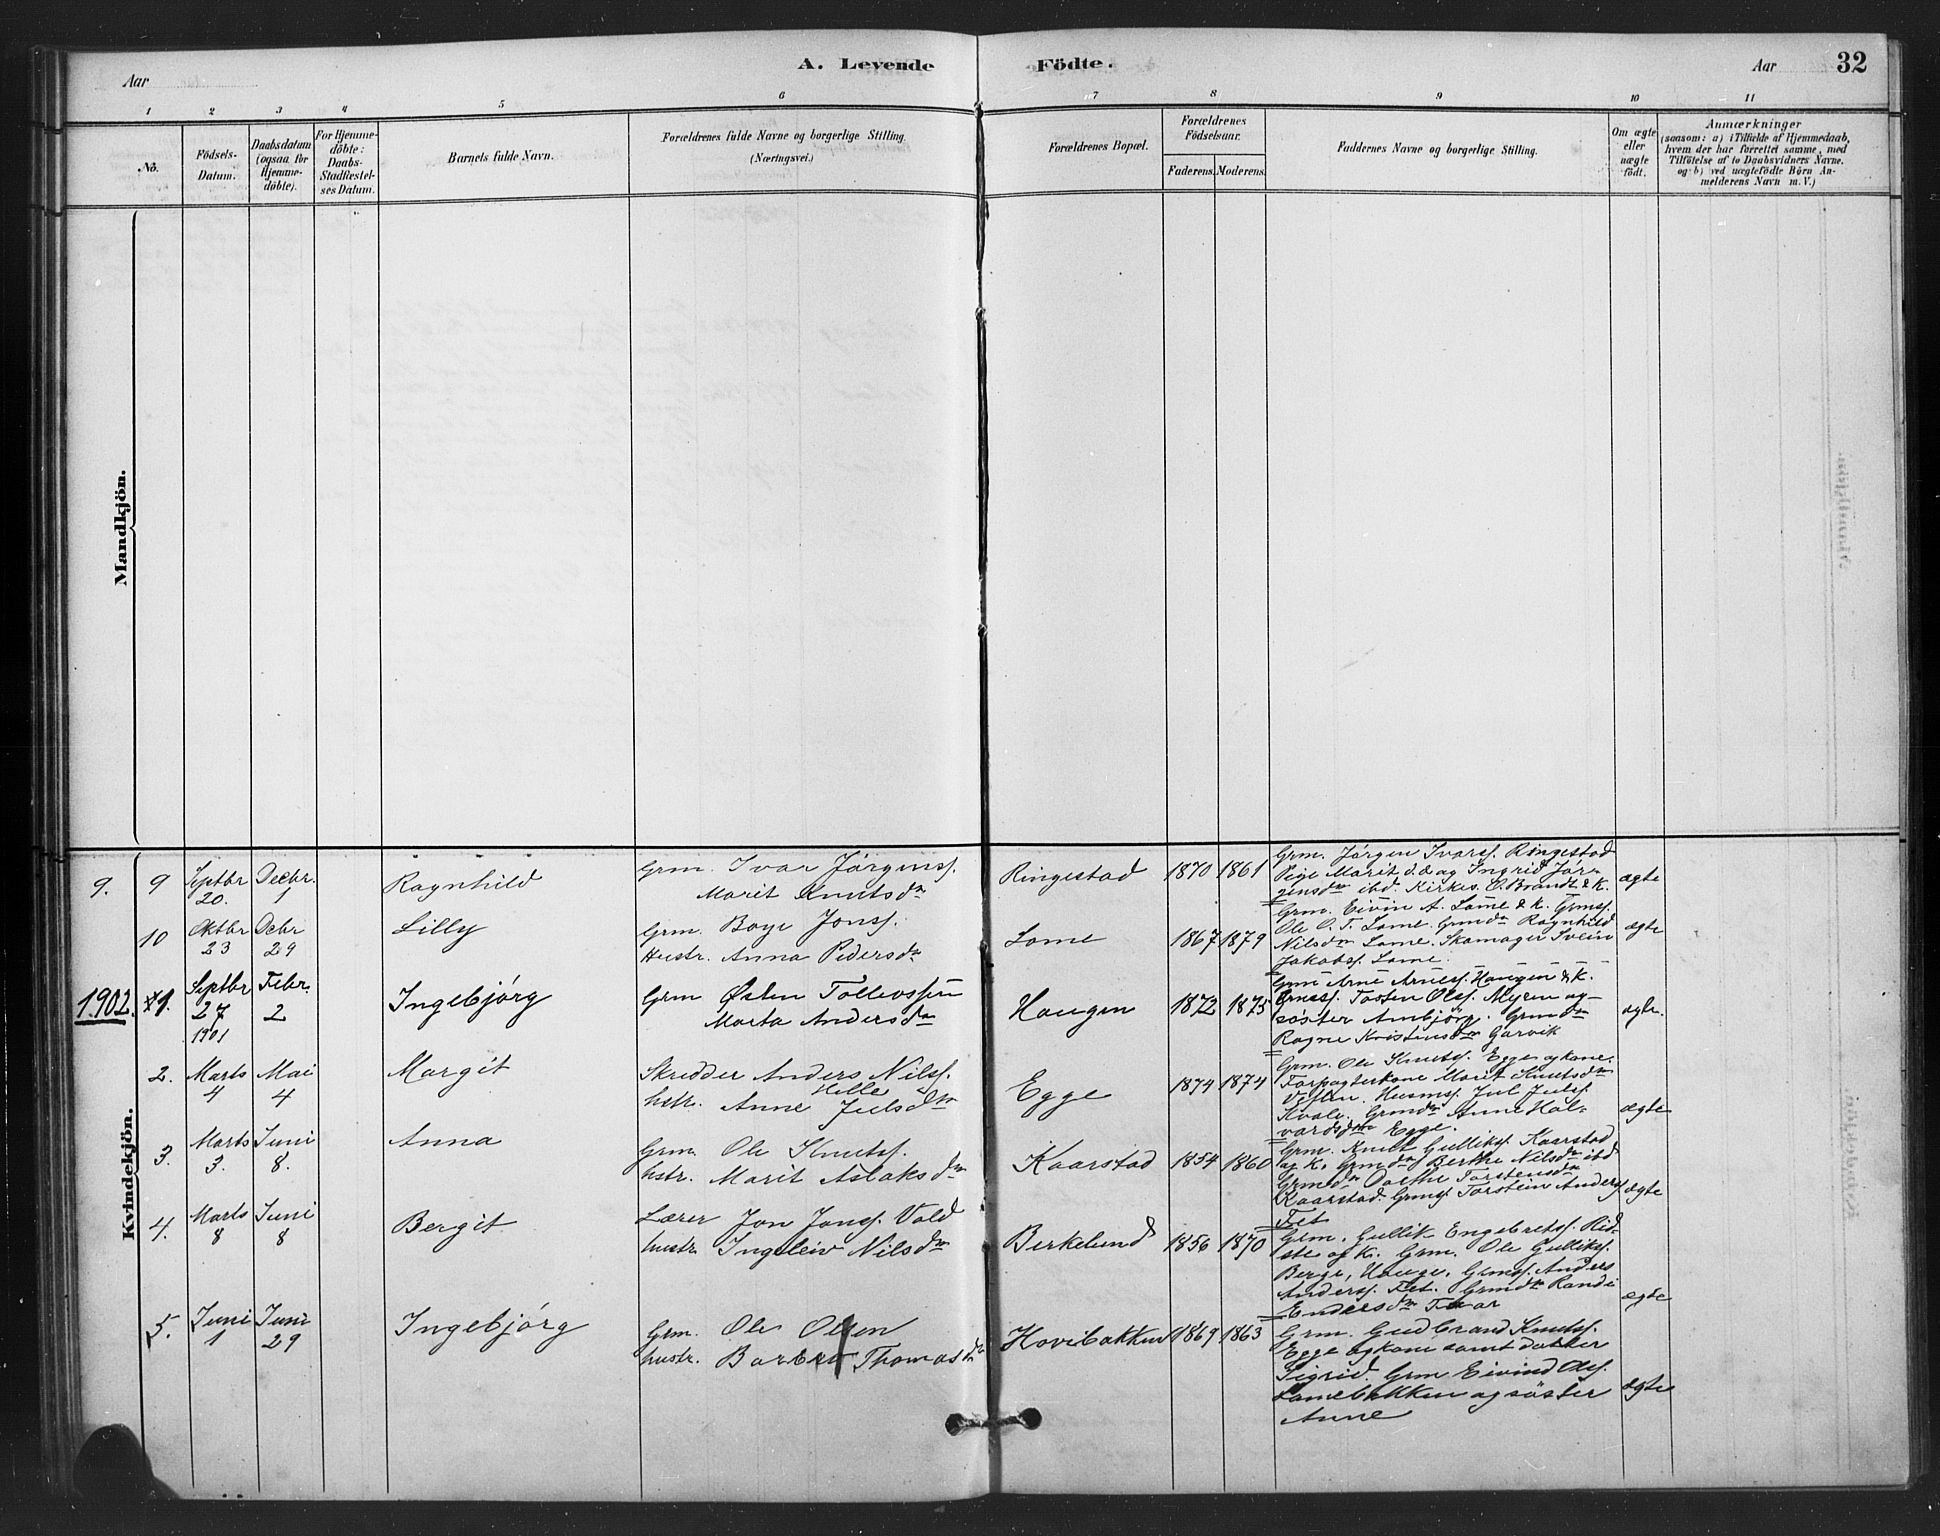 A. Levende Födte.
Aar
Aar
32
1 2 3 4 5 6 7 8 9 10 11
No.
Födsels-Datum.
Daabsdatum (ogsaa for Hjemme-döbte).
For Hjemme-döbte: Daabs-Stadfestel-ses Datum.
Barnets fulde Navn.
Forældrenes fulde Navne og borgerlige Stilling.
(Næringsvei.)
Forældrenes Bopæl.
Forældrenes Födselsaar.
Faderens.
Moderens.
Faddernes Navne og borgerlige Stilling.
Om ægte eller uægte födt.
Anmærkninger
(saasom: a) i Tilfælde af Hjemmedaab,
hvem der har forrettet samme, med
Tilföielse af to Daabsvidners Navne.
og b) ved uægtefödte Börn An-
melderens Navn m. V.)
Mandkjön.
Kvindekjön.
9. 9 Septbr 20. Decbr. 1 Ragnhild
Grm. Ivar Jörgenss.
Marit Knutsdn
Ringestad 1870 1861
Grm. Jörgen Ivarss. Ringestad
Pige Marit d.d. og Ingrid Jör-
gensdn ibd. Kirkes. O. Brandt & K.
ægte
10 Oktbr 23 Decbr 29 Lilly
Grm. Boye Jonss.
Hustr. Anna Pedersdn
Lome 1867 1879
Grm. Eivin A. Lome & K. Grmss.
Ole O. T. Lome. Grmdn Ragnhild
Nilsdn Lome. Skomager Svein
Jakobss. Lome.
ægte
1902. 1. Septbr 27 1901 Febr. 2 Ingebjörg
Grm Østen Tollevssen
Marta Andersdn
Haugen 1872 1875
Grm Arne Arness. Haugen & K.
Grmss. Tosten Olss. Myren og
söster Ambjörg. Grmdn
Ragne Kristensdn Garvik
ægte.
2. Marts 4 Mai 4 Margit
Skredder Anders Nilss. Hille
hstr. Anne Julsdn
Egge 1874 1874
Grm. Ole Knutss. Egge og kone.
Forpagterkone Marit Knutsdn
Husms. Jul Julss.
Kvale. Grmdn Anne Hal-
vardsdn Egge.
ægte
3. Marts 3. Juni 8. Anna
Grm. Ole Knutss.
hstr. Marit Aslaksdn
Kaarstad 1854 1860
Grm. Knut Gullikss. Kaarstad
og K. Grmdn Berthe Nilsdn ibd
Grmdn Dorthe Torstensdn
Kaarstad. Grmss. Torstein Anderss.
Fet
ægte
4. Marts 8 Juni 8 Bergit
Lærer Jon Jonss. Vold
hustr. Ingeleiv Nilsdn
Birkelund 1856 1870
Grm. Gullik Engebretss. Rid-
ste og K. Grm. Ole Gullikss.
Berge, Hauge. Grmss. Anders
Anderss. Fet. Grmdn Randi
Endersdn
ægte
5. Juni 1 Juni 29 Ingebjörg
Grm. Ole Olsen
hustr. Barbro Thomasdn
Hovibakken 1869 1863
Grm. Gudbrand Knutss.
Egge og kone samt datter
Sigrid. Grm Eivind Olss.
Lomebakken og söster
Anne
ægte